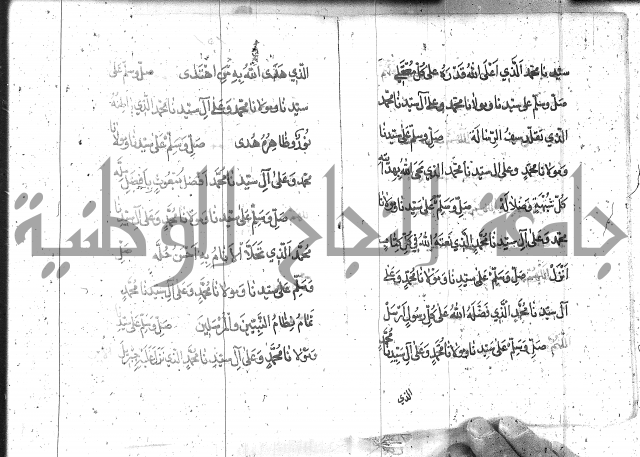 سيدنا محمد الذي اعلى الله قدره على كل
صل وسلم على سيدنا ومولانا محمد وعلى آل سيدنا محمد
الذي الرسالة صل وسلم على سيدنا
ومولانا محمد وعلى آل سيدنا محمد الذي محى الله بهداه
كل شبهة وضلالة صل وسلم على سيدنا ومولانا
محمد وعلى آل سيدنا محمد الذي نعته الله في كل كتاب
انزل اللهم صل وسلم على سيدنا ومولانا محمد وعلى
آل سيدنا محمد الذي فضله الله على كل رسول ارسل
اللهم صل وسلم على سيدنا ومولانا محمد وعلى آل سيدنا محمد
الذي
الذي هدى الله به من اهتدى صل وسلم على
سيدنا ومولانا محمد وعلى آل سيدنا محمد الذي
نور وظاهره هدى صل وسلم على سيدنا ومولانا
محمد وعلى آل سيدنا محمد افضل مبعوث بافضل
صل وسلم على سيدنا ومولانا محمد وعلى آل سيدنا
محمد الذي الانام به احسن صل
وسلم على سيدنا ومولانا محمد وعلى آل سيدنا محمد
تمام نظام النبيين والمرسلين صل وسلم على سيدنا
ومولانا محمد وعلى آل سيدنا محمد الذي نزل عليه جبريل
جامعة النجاح الوطنية